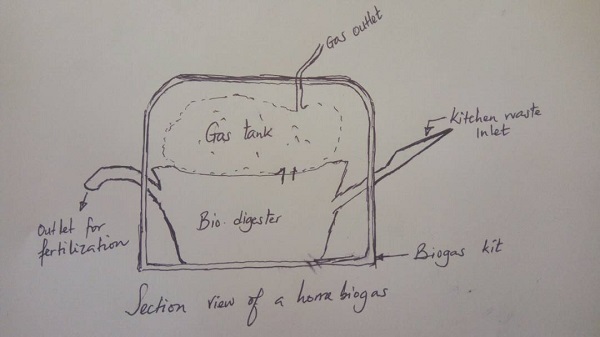 Gas outlet
Gas tank
Kitchen waste
Inlet
Outlet for
fertilization
Bio. digester
Biogas kit
Section view of a home biogas